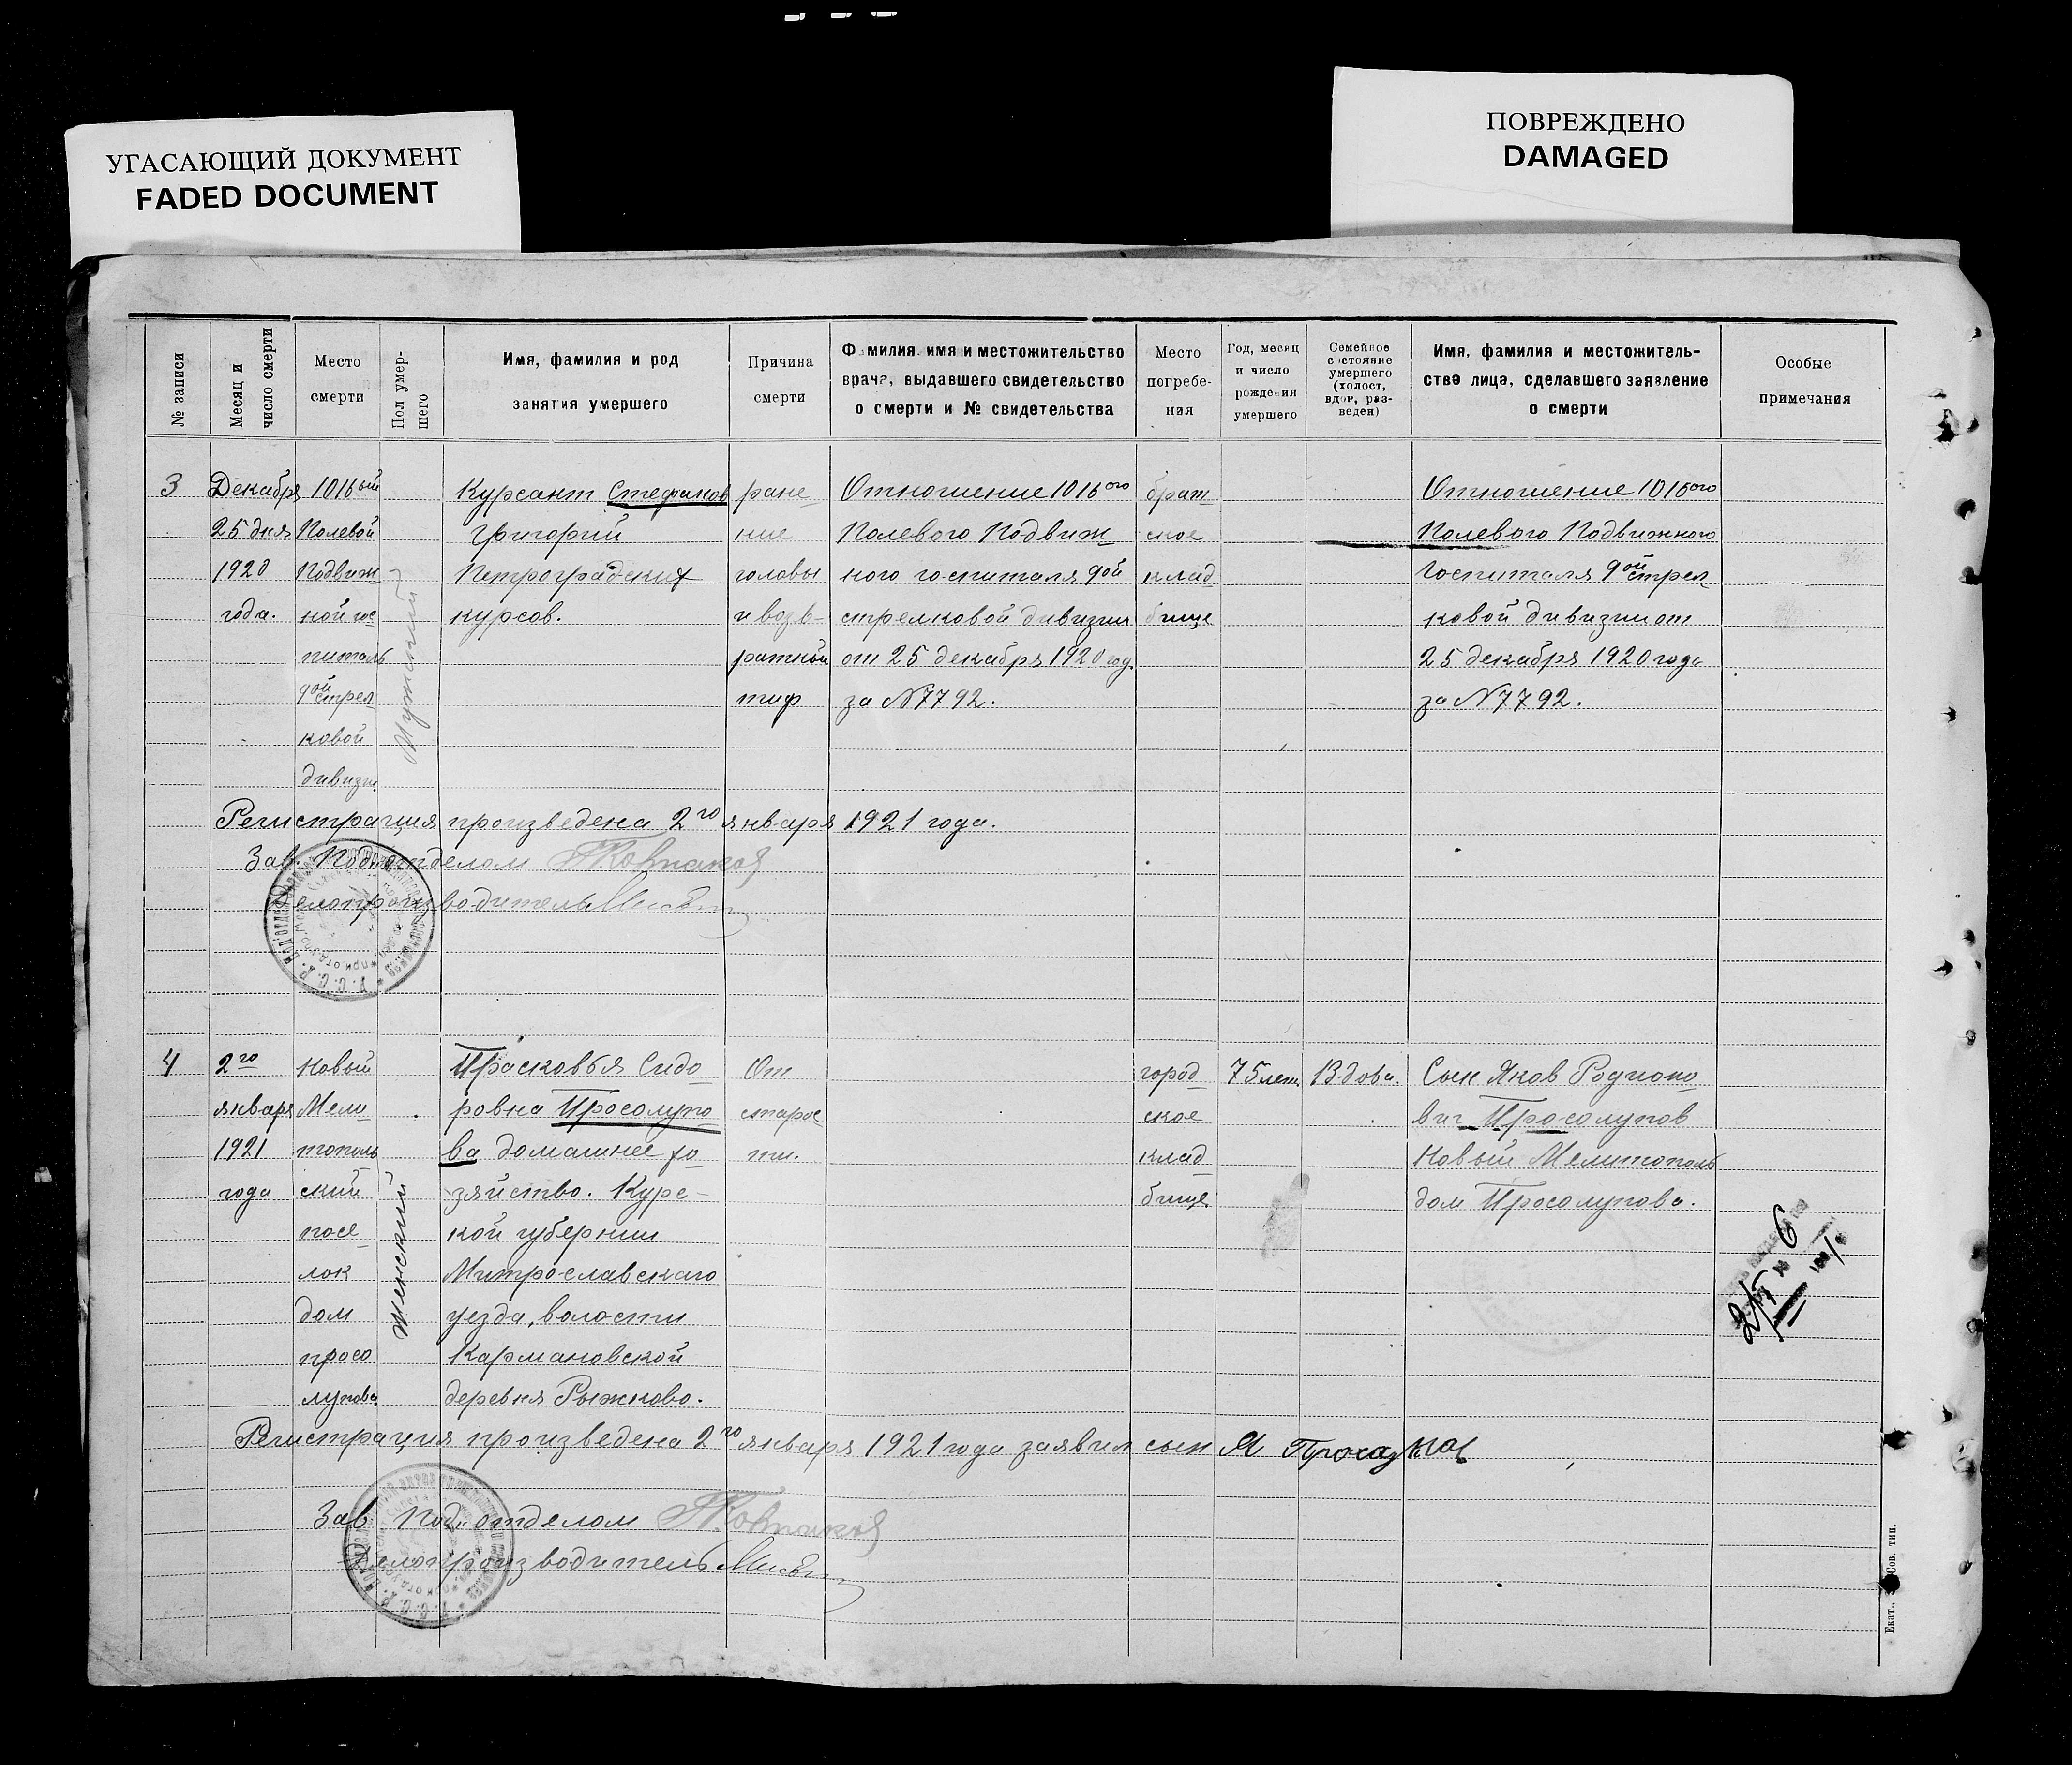 УГАСАЮЩИЙ ДОКУМЕНТ
FADED DOCUMENT
ПОВРЕЖДЕНО
DAMAGED
№ записи
Месяц и
число смерти
Место
смерти
Пол умер-
шего
Имя, фамилия и род
занятия умершего
Причина
смерти
Фамилия, имя и местожительство
врача, выдавшего свидетельство
о смерти и № свидетельства
Место
погребе-
ния
Год, месяц
и число
рождения
умершего
Семейное
состояние
умершего
(холост,
вдов, раз-
веден)
Имя, фамилия и местожитель-
ство лица, сделавшего заявление
о смерти
Особые
примечания
3
Декабря
25 дня
1920
года.
1016ый
Полевой
Подвиж
ной гос
питаль
9ой стрел
ковой
дивизи.
Мужской
Курсант Стефанов
Григорий
Петроградских
курсов.
ране
ние
головы
и возв-
ратный
тиф
Отношение 1016ого
Полевого Подвиж
ного госпиталя 9ой
стрелковой дивизии
от 25 декабря 1920 год.
за N 7792.
брат
ское
клад
бище
Отношение 1016ого
Полевого Подвижного
Госпиталя 9ой стрел
ковой дивизии от
25 декабря 1920 года
за N 7792.
Регистрация произведена 2го января 1921 года.
Зав. Подотделом
Делопроизводитель
4
2го
января
1921
года
Новый
Мели
тополь
ский
посе
лок
дом
просо
лупова
Женский
Прасковья Сидо
ровна Просолупо
ва домашнее хо
зяйство. Курс-
кой губернии
Митрославскаго
уезда, волости
Кармановской
деревня Рыжково.
От
старос
ти.
город
ское
клад
бище
75 лет.
Вдова.
Сын Яков Родионо
вич Просолупов
Новый Мелитополь
дом Просолупова.
6
Регистрация произведена 2го января 1921 года заявил сын Я
Зав Под. отделом
Делопроизводитель
Екат., Сов. тип.